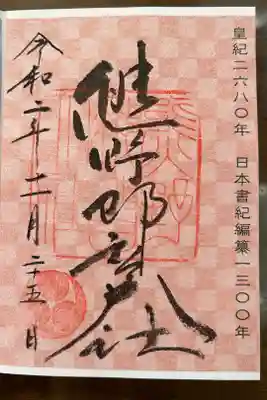 皇紀二六八〇年　日本書紀編纂一三〇〇年
熊野那智大社
令和二年十二月二十五日